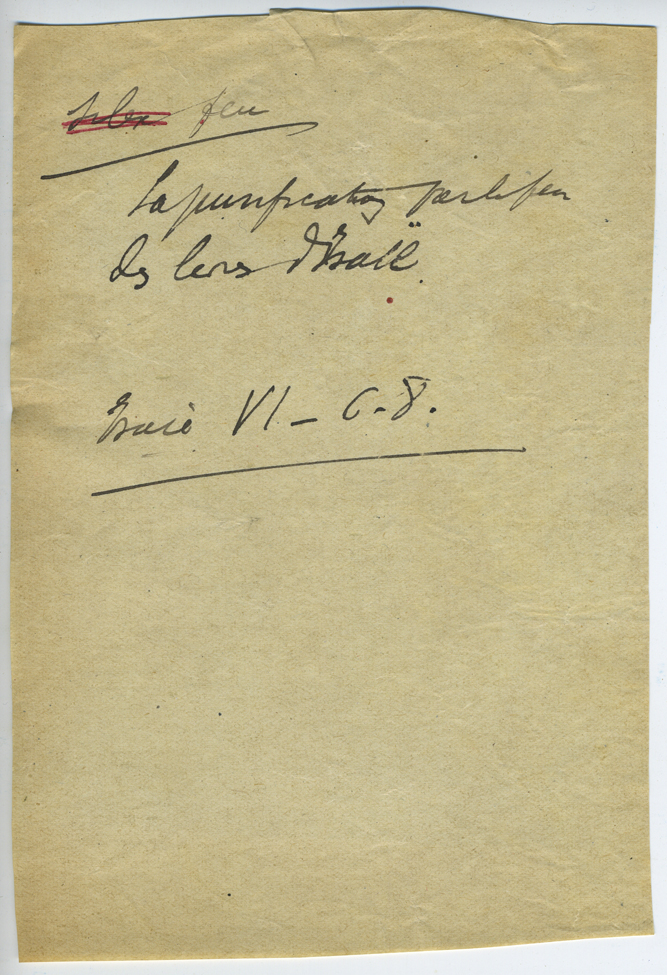 feu
La purification par le feu
des levres d'Isaïe
Isaïe VI - 6-8.